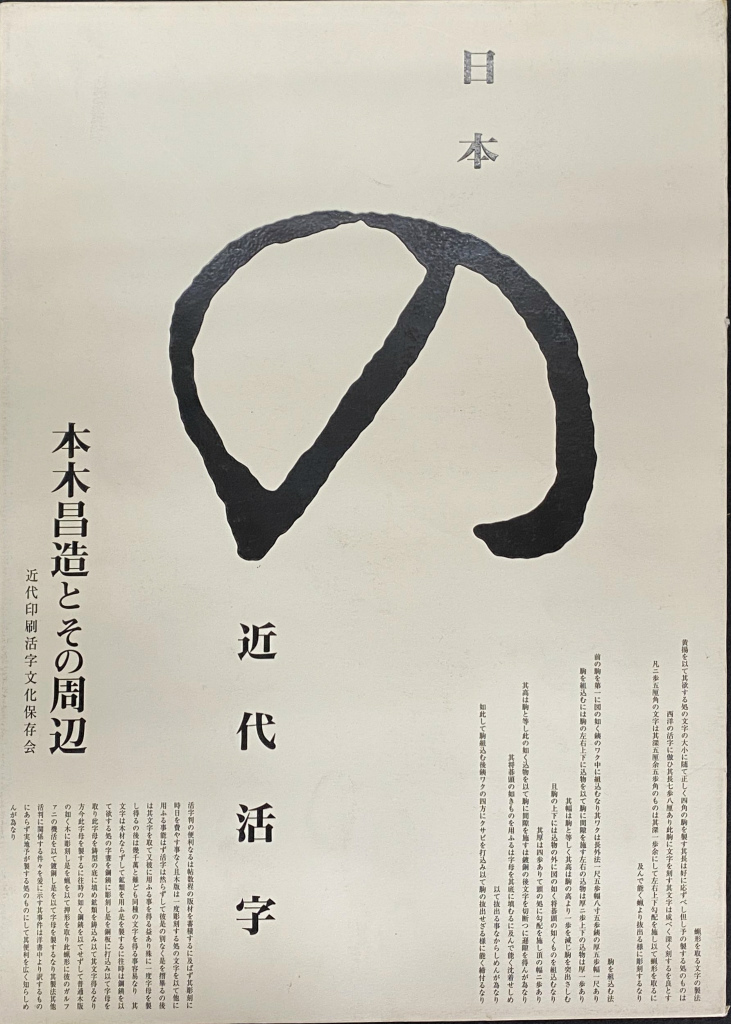 日本
の
近代活字
本木昌造とその周辺
近代印刷活字文化保存会
蝋形を取る文字の製法
黄楊を以て其欲する処の文字の大小に随て正しく四角の駒を製す其長は好に応ずべし但し予の製する処のものは
西洋の活字に倣ひ其長七歩八厘あり此駒に文字を刻す其文字は成べく深く刻するを良とす
凡ニ歩五厘角の文字は其深五厘余五歩角のものは其深一歩余にして左右上下勾配を施し以て蝋形を取るに
及んで能く蝋より抜出る様に彫刻するなり
駒を組込む法
前の駒を第一に図の如く のワク中に組込むなり其ワクは長外法一尺五歩幅八寸五歩 の厚五歩幅一尺あり
駒を組込むには駒の左右上下に込物を以て駒に間隙を施す左右の込物は厚ニ歩上下の込物は厚一歩あり
其幅は駒と等しく其高は駒の高より一歩を減じ駒を突出さしむ
且駒の上下には込物の外に図の如く将碁頭の如くものを組込むなり
其厚は四歩ありて頭の処に勾配を施し頂の幅二歩あり
其高は駒と等し此の如く込物を以て駒に間隙を施すは鍍銅の後文字を切断つに 隙を得んが為なり
其将碁頭の如きものを用ふるは字母を其底に填むるに及んで能く沈着せしめ
以て抜出る事なからしめんが為なり
如此して駒組込む後 ワクの四方にクサビを打込み以て駒の抜出せざる様に能く締付るなり
活字判の便利なるは帖数程の版材を蓄積するに及ばず其彫刻に
時日を費やす事なく且木版は一度彫刻する処の文字を以て他に
用ふる事能はず活字は然らずして彼是の別なく是を摺畢るの後
は其文字を取て又彼に用ふる事を得る益あり殊に一度字母を製
し得るの後は幾千萬と雖ども同種の文字を得る事容易なり 其
文字は木材ならずして鉱類を用ふ是を製するに往時は鋼鉄を以
て欲する処の字書を鋼鉄に彫刻し是を銅板に打込み以て字母を
取り此字母を鋳型の底に填め鉱類を鋳込み以て其文字得るなり
方今此字母を製するに往時の如く鋼鉄を以てせずして普通木版
の如く木に彫刻し是を蝋を以て押形を取り此蝋形に彼のガルフ
ァニの機活を以て鍍銅し是を以て字母を製するなり其製法其他
活判に関係する件々を爰に示す其事件は洋書中より訳するもの
にあらず実地予が製する処のものにして其便利を広く知らしめ
んが為なり